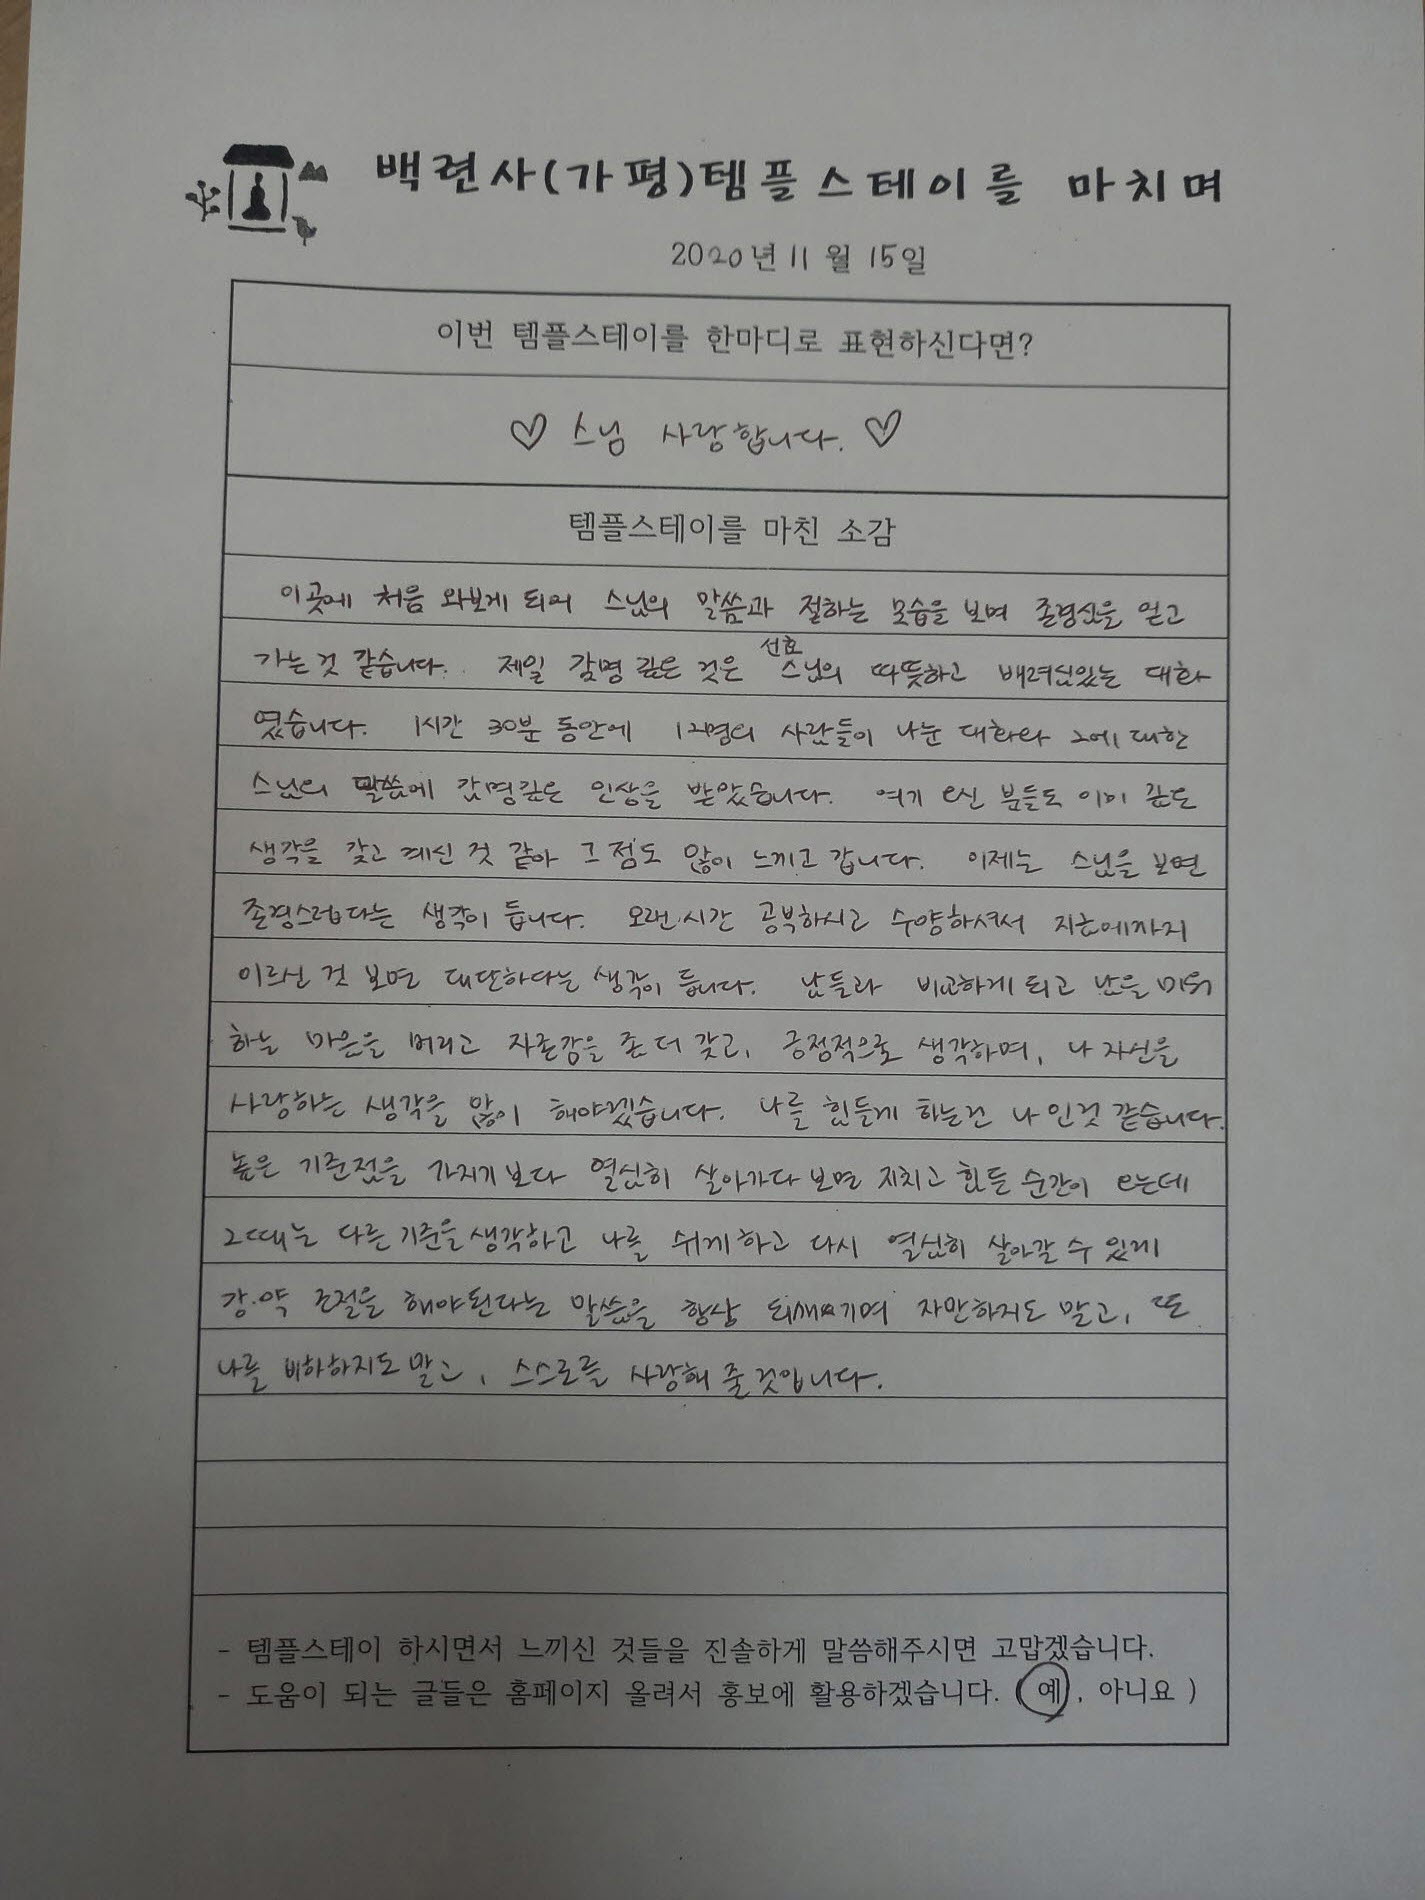 백련사(가평)템플스테이를 마치며
2020년 11월 15일
이번 템플스테이를 한마디로 표현하신다면?
♡ 스님 사랑합니다. ♡
템플스테이를 마친 소감
이곳에 처음 와보게 되어 스님의 말씀과 절하는 모습을 보며 존경심을 얻고
가는 것 같습니다. 제일 감명 깊은 것은 선효 스님의 따뜻하고 배려심있는 대화
였습니다. 1시간 30분 동안에 12명의 사람들이 나눈 대화와 그에 대한
스님의 말씀에 감명깊은 인상을 받았습니다. 여기 오신 분들도 이미 깊은
생각을 갖고 계신 것 같아 그 점도 많이 느끼고 갑니다. 이제는 스님을 보면
존경스럽다는 생각이 듭니다. 오랜 시간 공부하시고 수양하셔서 지혜에까지
이르신 것 보면 대단하다는 생각이 듭니다. 남들과 비교하게 되고 남을 미워
하는 마음을 버리고 자존감을 좀 더 갖고, 긍정적으로 생각하며, 나 자신을
사랑하는 생각을 많이 해야겠습니다. 나를 힘들게 하는건 나 인것 같습니다.
높은 기준점을 가지기 보다 열심히 살아가다 보면 지치고 힘든 순간이 오는데
그때는 다른 기준을 생각하고 나를 쉬게하고 다시 열심히 살아갈 수 있게
강·약 조절을 해야된다는 말씀을 항상 되새기며 자만하지도 말고, 또
나를 비하하지도 말고, 스스로를 사랑해 줄것입니다.
- 템플스테이 하시면서 느끼신 것들을 진솔하게 말씀해주시면 고맙겠습니다.
- 도움이 되는 글들은 홈페이지 올려서 홍보에 활용하겠습니다. ( 예 , 아니요 )